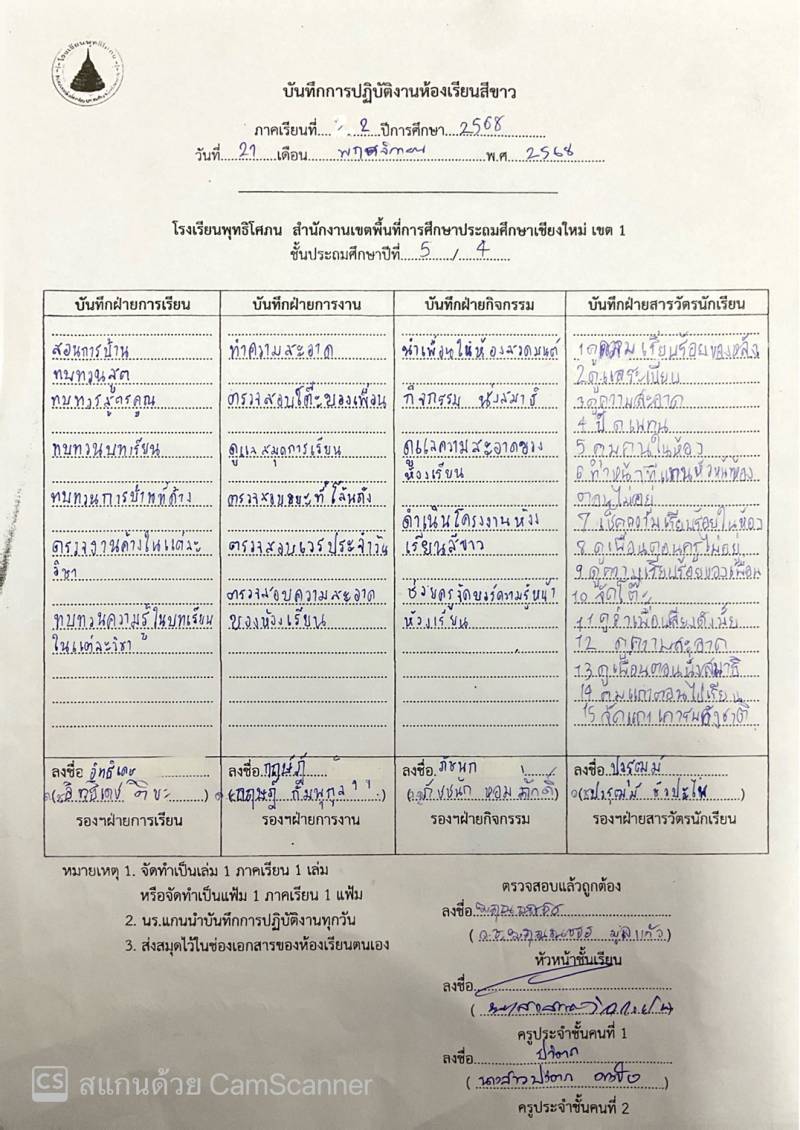 บันทึกการปฏิบัติงานห้องเรียนสีขาว
ภาคเรียนที่ 2 ปีการศึกษา 2568
วันที่ 21 เดือน พฤศจิกายน พ.ศ 2568
โรงเรียนพุทธิโศภน สำนักงานเขตพื้นที่การศึกษาประถมศึกษาเชียงใหม่ เขต 1
ชั้นประถมศึกษาปีที่ 5 / 4
บันทึกฝ่ายการเรียน
สอนการบ้าน
ทบทวนสูต
ทบทวรสูตรคูณ
ทบทวนบทเรียน
ทบทวนการบ้าทที่ค้าง
ตรวจงานค้างในแต่ละ
วิชา
ทบทวนความรู้ในบทเรียน
ในแต่ละวิชา
บันทึกฝ่ายการงาน
ทำความสะอาด
ตรวจสอบโต๊ะของเพื่อน
ดูแลสมุดการเรียน
ตรวจสอบขยะที่โต้นดัง
ตรวจสอบเวรประจำวัน
ตรวจสอบความสะอาด
ของห้องเรียน
บันทึกฝ่ายกิจกรรม
นำเพื่อนในห้องสวดมนต์
กิจกรรม นั่งสมาธิ
ดูแลความสะอาดของ
ห้องเรียน
ดำเนินโครงงานห้อง
เรียนสีขาว
ช่วยครูจัดบอร์ดความรู้หน้า
ห้องเรียน
บันทึกฝ่ายสารวัตรนักเรียน
1 ดูความเรียบร้อยของหลัง
2 ดูแลระเบียบ
3 ดูความสะอาด
4 ปี
5 คุมคนในห้อง
6 ทำหน้าที่แทนหัวหน้าห้อง
ตอนไม่อยู่
7 เช็คความเรียบร้อยในห้อง
8 ดูเพื่อนตอนครูไม่อยู่
9 ดูความเรียบร้อยของเพื่อน
10 จัดโต๊ะ
11 ดูว่าเพื่อเสียงดังมั้ย
12 ดูความสะอาด
13 ดูเพื่อนตอนนั่งสมาธิ
14 คุมแถวตอนไปเรียน
15 จัดแถวเคารพธงชาติ
ลงชื่อ อิทธิเดช
รองฯฝ่ายการเรียน
ลงชื่อ กฤษฎิ์
รองฯฝ่ายการงาน
ลงชื่อ
รองฯฝ่ายกิจกรรม
ลงชื่อ ปวรุฒม์
รองฯฝ่ายสารวัตรนักเรียน
หมายเหตุ 1. จัดทำเป็นเล่ม 1 ภาคเรียน 1 เล่ม
หรือจัดทำเป็นแฟ้ม 1 ภาคเรียน 1 แฟ้ม
2. นร.แกนนำบันทึกการปฏิบัติงานทุกวัน
3. ส่งสมุดไว้ในช่องเอกสารของห้องเรียนตนเอง
ตรวจสอบแล้วถูกต้อง
ลงชื่อ
หัวหน้าชั้นเรียน
ลงชื่อ
ครูประจำชั้นคนที่ 1
ลงชื่อ
ครูประจำชั้นคนที่ 2
CS สแกนด้วย CamScanner